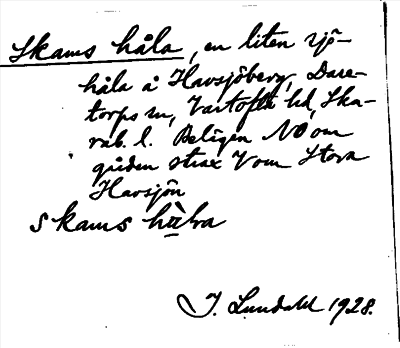 Skams håla, en liten sjö-
håla å Havsjöberg, Dare-
torps sn, Vartofta hd, Ska-
rab. l. Belägen NO om
gården strax V om Stora
Havsjön
skams hå̀la
J. Lundahl 1928.